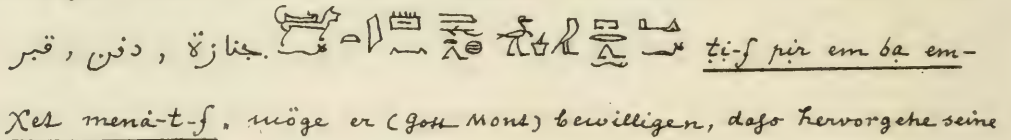 جنازة , دفن , قبر ṭi-f pir em ba em-
χet menȧ-t-f. möge er (Gott Mont) bewilligen, daſs hervorgehe seine